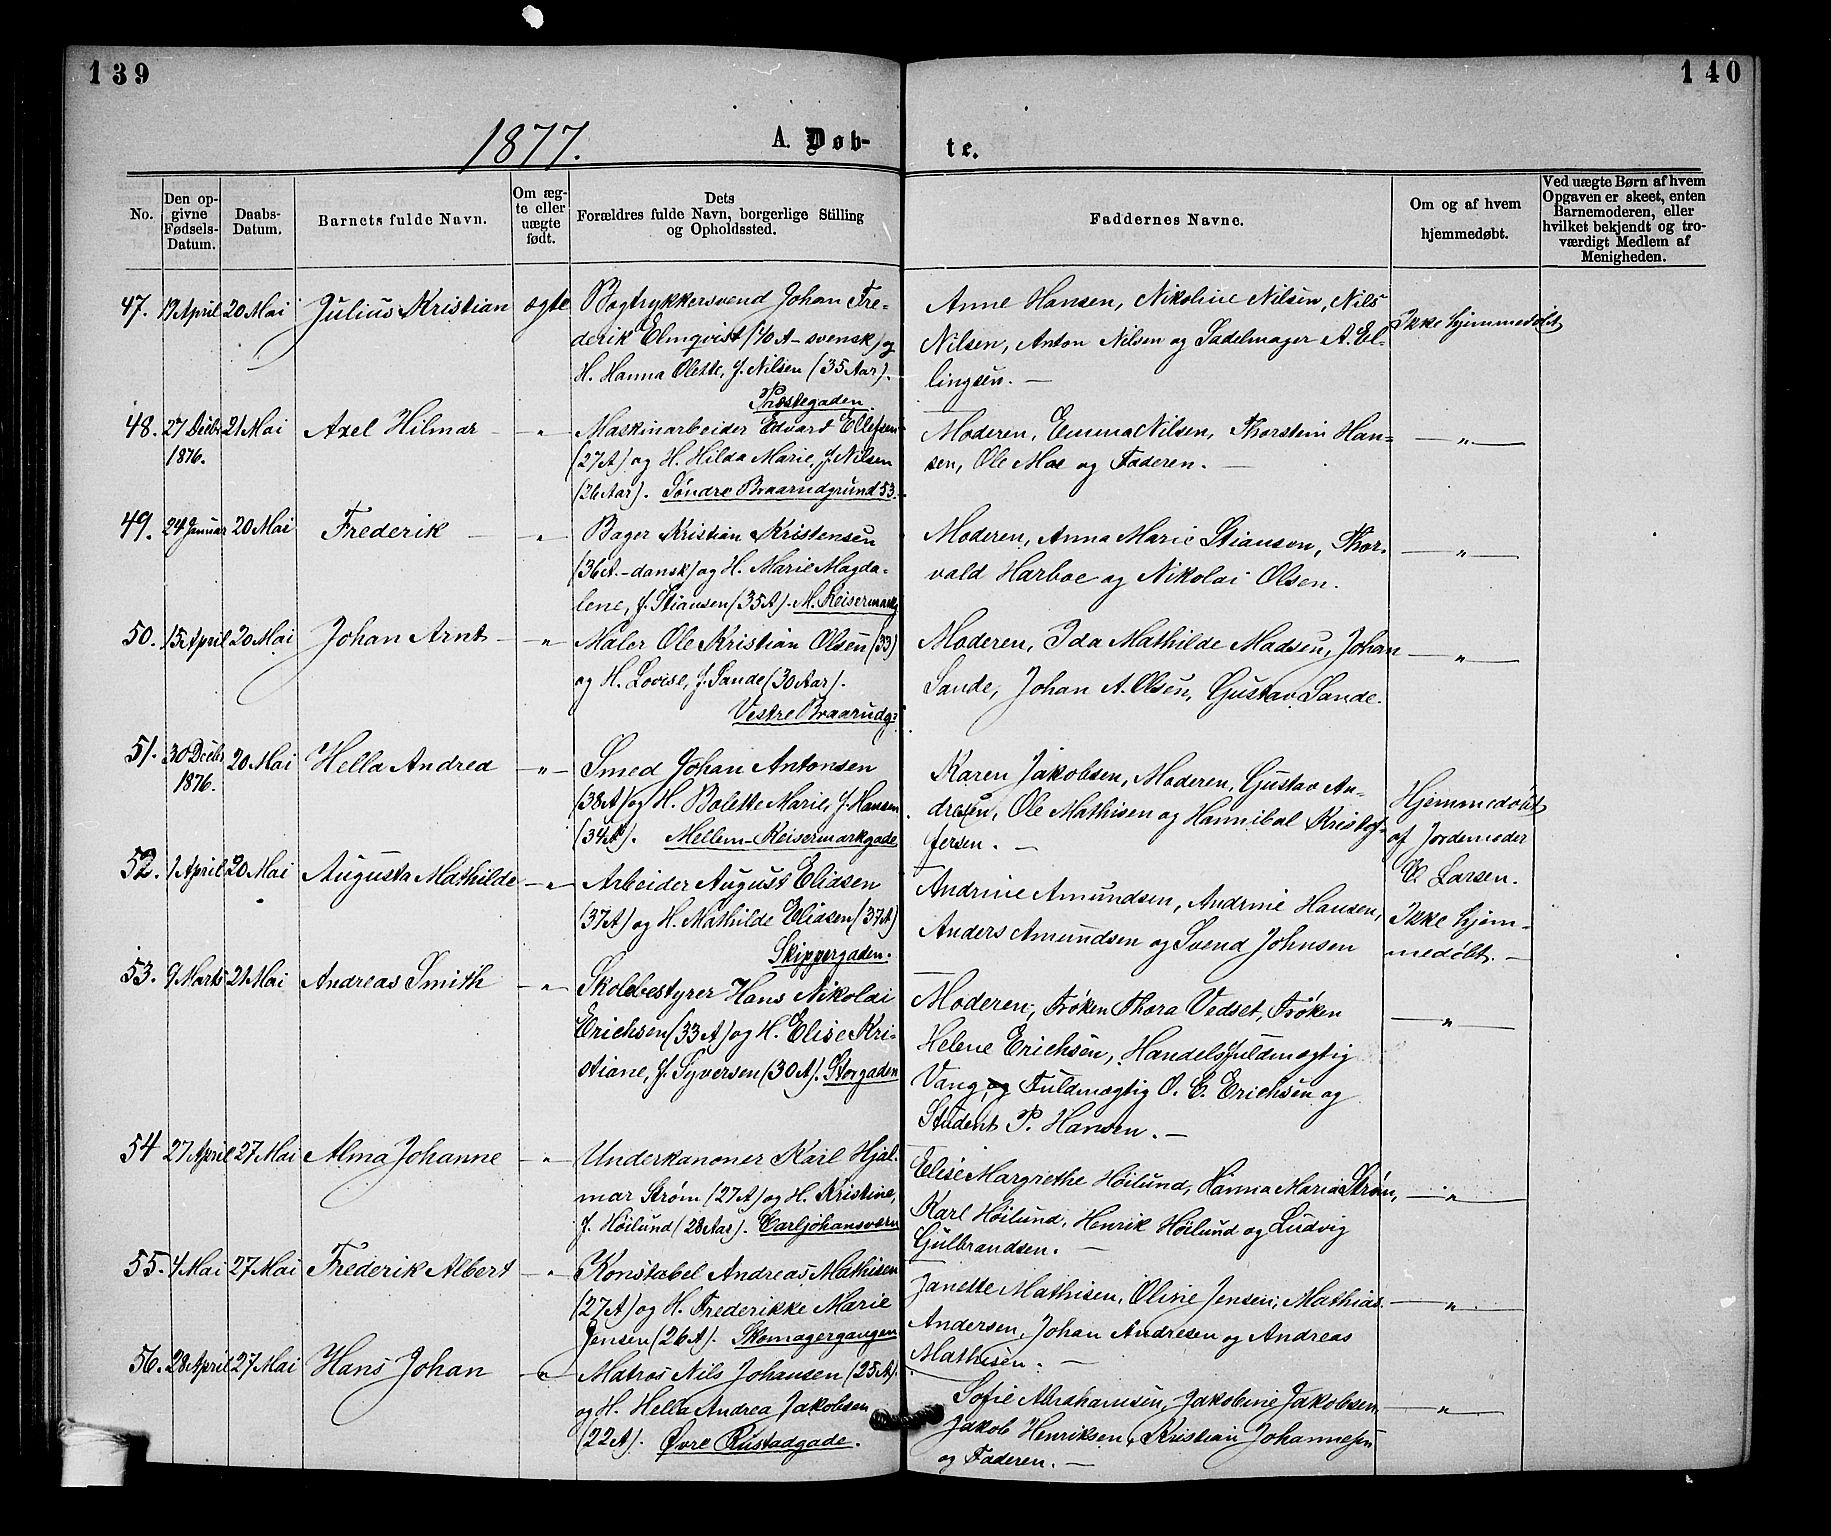 139
140
1877.
A. Døb-
te.
No.
Den op-
givne
Fødsels-
Datum.
Daabs-
Datum.
Barnets fulde Navn.
Om æg-
te eller
uægte
født.
Dets
Forældres fulde Navn, borgerlige Stilling
og Opholdssted.
Faddernes Navne.
Om og af hvem
hjemmedøbt.
Ved uægte Børn af hvem
Opgaven er skeet, enten
Barnemoderen, eller
hvilket bekjendt og tro-
værdigt Medlem af
Menigheden.
47. 19 April 20 Mai Julius Kristian ægte
Bogtrykkersvend Johan Fre-
derik Elmqvist (40 A - svensk) og
H. Hanna Olette, f. Nilsen (35 Aar).
Præstegaden.
Anne Hansen, Nikoline Nilsen, Nils
Nilsen, Anton Nilsen og Sadelmager A. El-
lingsen. —
Ikke hjemmedøbt
48. 27 Decbr 21 Mai Axel Hilmar — „ —
1876.
Maskinarbeider Edvard Ellefsen
(27 A) og H. Hilda Marie, f. Nilsen
(26 Aar). Søndre Braarudgrund 53.
Moderen, Emma Nilsen, Thorstein Han-
sen, Ole Moe og Faderen. —
— „ —
49. 24 Januar 20 Mai Frederik — „ —
Bager Kristian Kristensen
(36 A. - dansk) og H. Marie Magda-
lene, f. Stiansen (35 A). M. Keisermarkg
Moderen, Anna Marie Stiansen, Thor-
vald Harboe og Nikolai Olsen.
— „ —
50. 15 April 20 Mai Johan Arnt — „ —
Maler Ole Kristian Olsen (33)
og H. Lovise, f. Sande (30 Aar).
Vestre Braarudg.
Moderen, Ida Mathilde Madsen, Johan
Sande, Johan A. Olsen, Gustav Sande.
— „ —
51. 30 Decbr 20 Mai Hella Andrea — „ —
1876.
Smed Johan Antonsen
(38 A) og H. Bolette Marie, f. Hansen
(34 A). Mellem-Keisermarkgade
Karen Jakobsen, Moderen, Gustav An-
dresen, Ole Mathisen og Hannibal Kristof-
fersen. —
Hjemmedøbt
af Jordemoder
C. Larsen.
52. 1 April 20 Mai Augusta Mathilde — „ —
Arbeider August Eliasen
(37 A) og H. Mathilde Eliasen (37 A)
Skippergaden.
Andrine Amundsen, Andrine Hansen,
Anders Amundsen og Svend Johnsen
Ikke hjem-
medøbt. —
53. 9 Marts 21 Mai Andreas Smith — „ —
Skolebestyrer Hans Nikolai
Erichsen (33 A) og H. Elise Kri-
stiane, f. Syversen (30 A). Storgaden
Moderen, Frøken Thora Vedset, Frøken
Helene Erichsen, Handelsfuldmægtig
Vang, og Fuldmægtig O. C. Erichsen og
Student P. Hansen. —
— „ —
54 27 April 27 Mai Alma Johanne — „ —
Underkanoner Karl Hjal-
mar Strøm (27 A) og H. Kristine,
f. Høilund (28 Aar). Carljohansværn
Elise Margrethe Høilund, Hanna Maria Strøm,
Karl Høilund, Henrik Høilund og Ludvig
Gulbrandsen. —
— „ —
55. 4 Mai 27 Mai Frederik Albert — „ —
Konstabel Andreas Mathisen
(27 A) og H. Frederikke Marie
Jensen (26 A). Skomagergangen
Janette Mathisen, Oline Jensen, Mathias
Andersen, Johan Andresen og Andreas
Mathisen. —
— „ —
56. 28 April 27 Mai Hans Johan — „ —
Matros Nils Johansen (25 A).
og H. Hella Andrea Jakobsen
(22 A). Øvre Rustadgade.
Sofie Abrahamsen, Jakobine Jakobsen,
Jakob Henriksen, Kristian Johannesen
og Faderen. —
— „ —